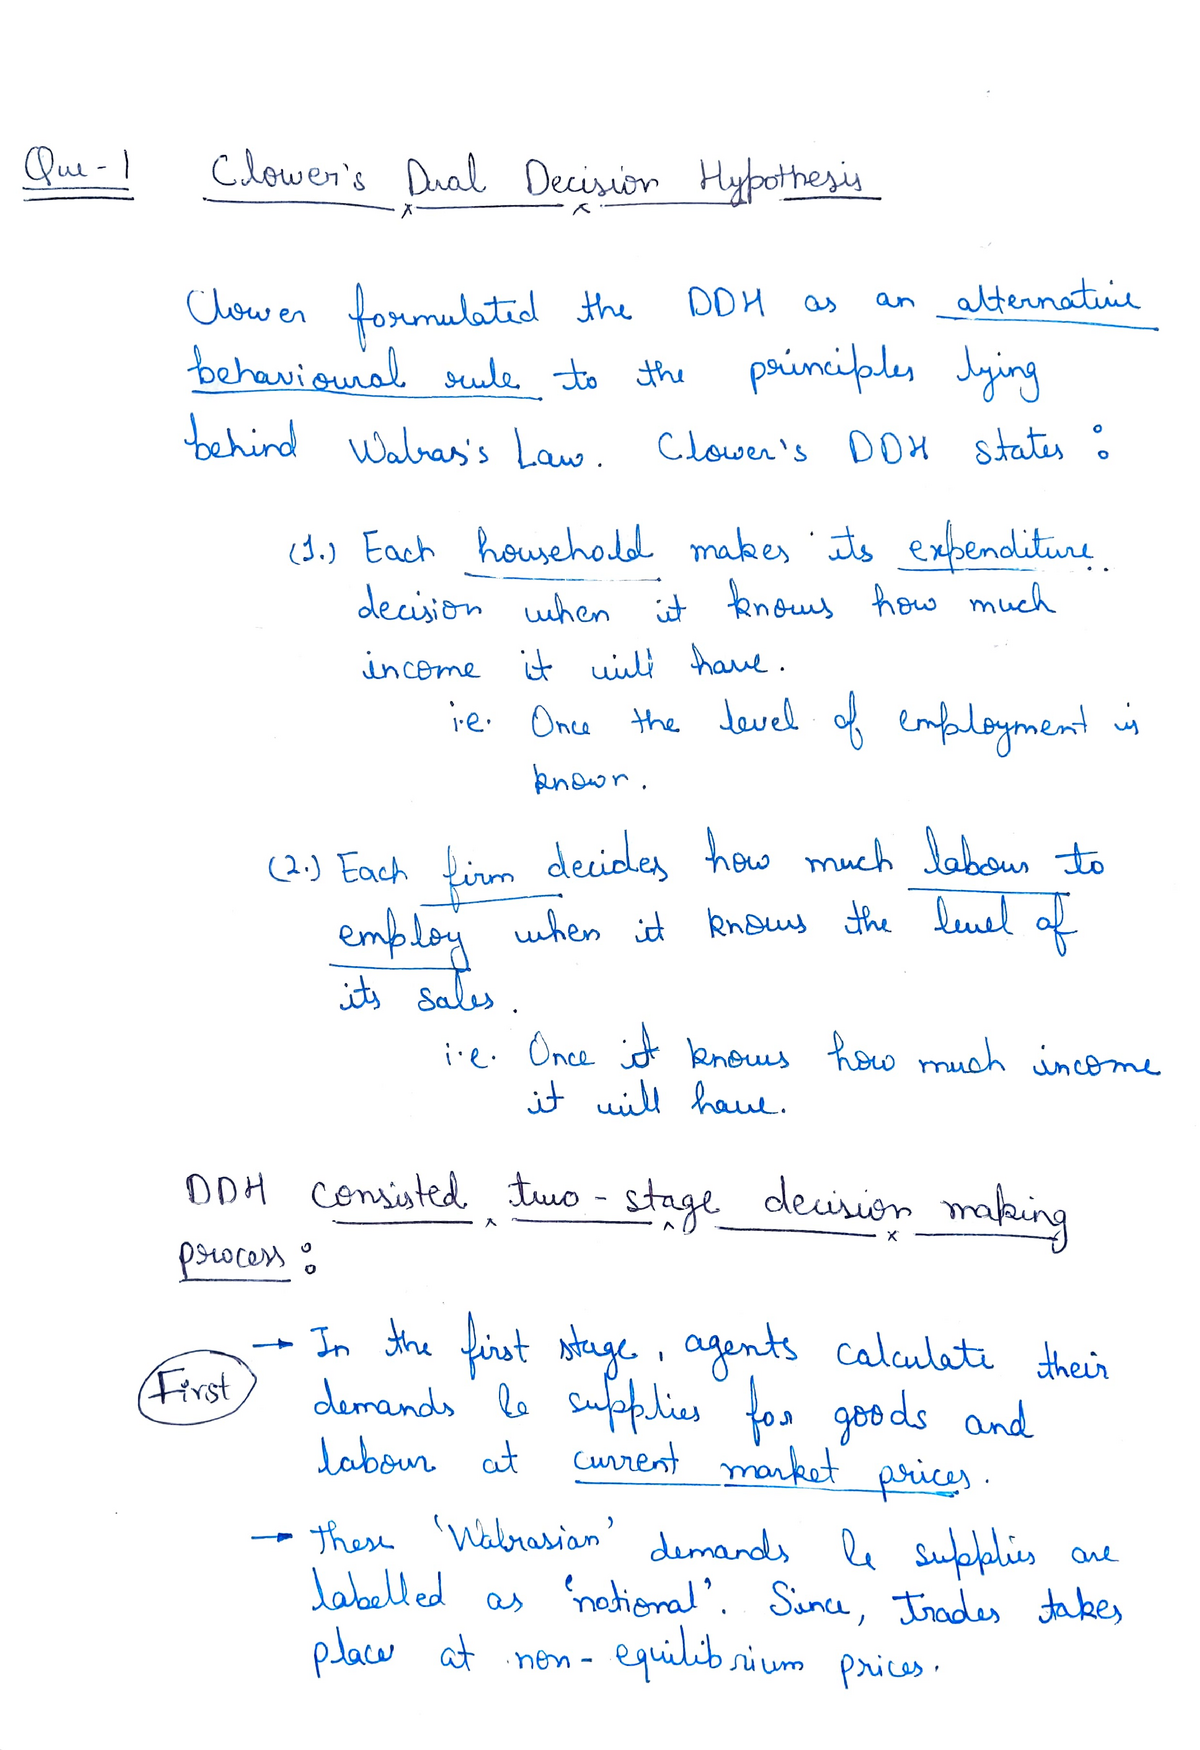 Que-1 Clower's Dual Decision Hypothesis
Clower formulated the DDH as an alternative
behavioural rule to the principles lying
behind Walras's Law. Clower's DDH states :
(1.) Each household makes its expenditure
decision when it knows how much
income it will have.
i.e. Once the level of employment is
known.
(2.) Each firm decides how much labour to
employ when it knows the level of
its sales.
i.e. Once it knows how much income
it will have.
DDH consisted two-stage decision making
process :
First
→ In the first stage, agents calculate their
demands & supplies for goods and
labour at current market prices.
→ These 'Walrasian' demands & supplies are
labelled as 'notional'. Since, trades takes
place at non-equilibrium prices.